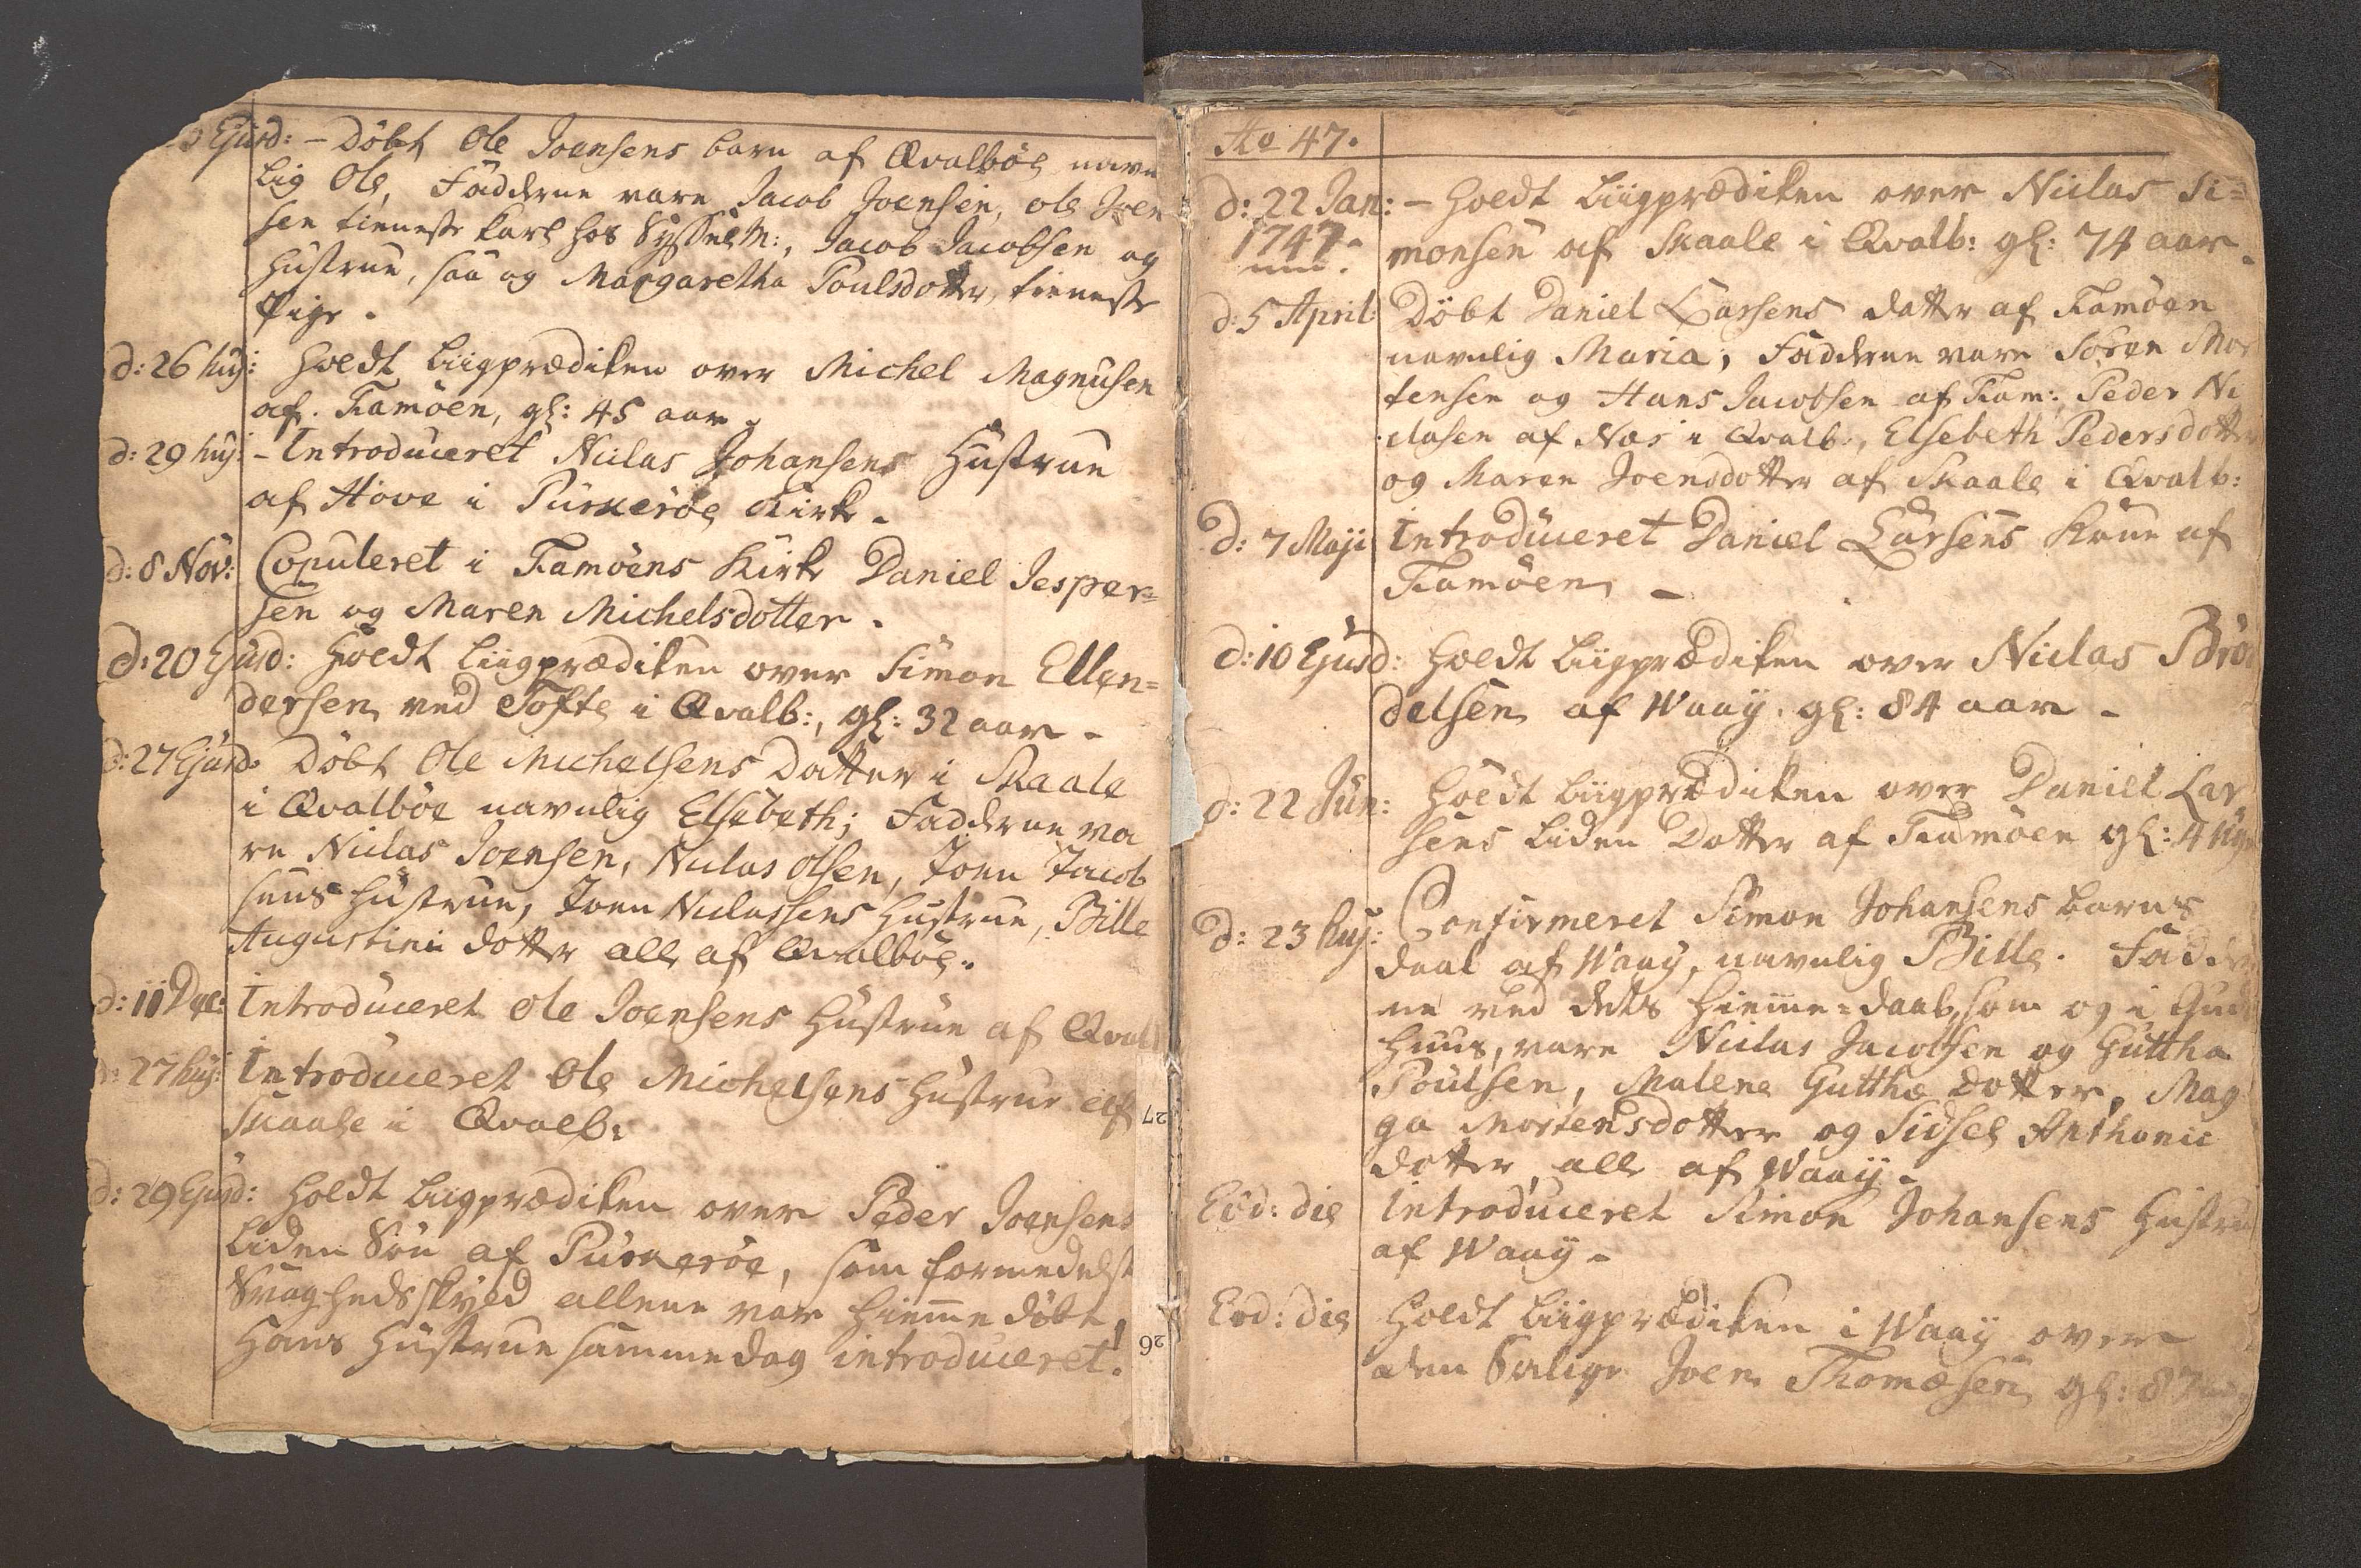 Ejusd: - Döbt Ole Joensens barn af Qvalböe navn
lig Ole, Fadderne vare Jacob Joensen, ole Joen
sen tieneste karl hos Sysselm:, Jacob Jacobsen og
Hustrue, saa og Margaretha Poulsdotter, tieneste
Pige.
d: 26 huj: Holdt Liigprædiken over Michel Magnusen
af Famöen, gl: 45 aar.
d: 29 huj: - Introduceret Niclas Johansens Hustrue
af Hove i Purkeröe Kirke.
d: 8 Nov: Copuleret i Famöens Kirke Daniel Jesper=
sen og Maren Michelsdotter.
d: 20 Ejusd: Holdt Liigprædiken over Simon Ellen=
dersen ved Tofte i Qvalb:, gl: 32 aar.
d: 27 Ejusd: Döbt Ole Michelsens Datter i Skaale
i Qvalböe navnlig Elsebeth; Fadderne va
re Niclas Joensen, Niclas Olsen, Joen Jacob
sens Hustrue, Joen Niclassens Hustrue, Bille
Augustini dotter alle af Qvalböe.
d: 11 Dec: Introduceret Ole Joensens Hustrue af Qvalb
d: 27 huj: Introduceret Ole Michelsens Hustrue af
Skaale i Qvalb:
d: 29 Ejusd: Holdt Liigprædiken over Peder Joensens
liden Sön af Purkeröe, som formedelst
Svagheds skyld allene var hiemme döbt,
Hans Hustrue samme dag introduceret.
27
26
Ao 47.
d: 22 Jan: - Holdt Liigprædiken over Niclas Si=
1747. monsen af Skaale i Qvalb: gl: 74 aar.
d: 5 April: Döbt Daniel Larsens datter af Famöen
navnlig Maria, Fadderne vare Sören Mor
tensen og Hans Jacobsen af Fam:, Peder Ni
clasen af Næs i Qvalb:, Elsebeth Pedersdotter
og Maren Joensdotter af Skaale i Qvalb:
d: 7 Maji Introduceret Daniel Larsens Kone af
Famöen -
d: 10 Ejusd: Holdt Liigprædiken over Niclas Brön
delsen af Waaÿ. gl: 84 aar -
d: 22 Jun: Holdt Liigprædiken over Daniel Lar
sens liden Dotter af Famöen gl: 4 uger
d: 23 huj: Confirmeret Simon Johansens barns
daab af Waaÿ, navnlig Bille. Fadder
ne ved dets Hiemme=daab, som og i Guds
Huus, vare Niclas Jacobsen og Guttha
Poulsen, Malene Gutthæ dotter, Mag
ga Mortensdotter og Sidsel Anthonii
dotter, alle af Waaÿ.
Eod: die Introduceret Simon Johansens Hustru
af Waaÿ.
Eod: die Holdt Liigprædiken i Waaÿ over
den Salige Joen Thomæsen gl: 87